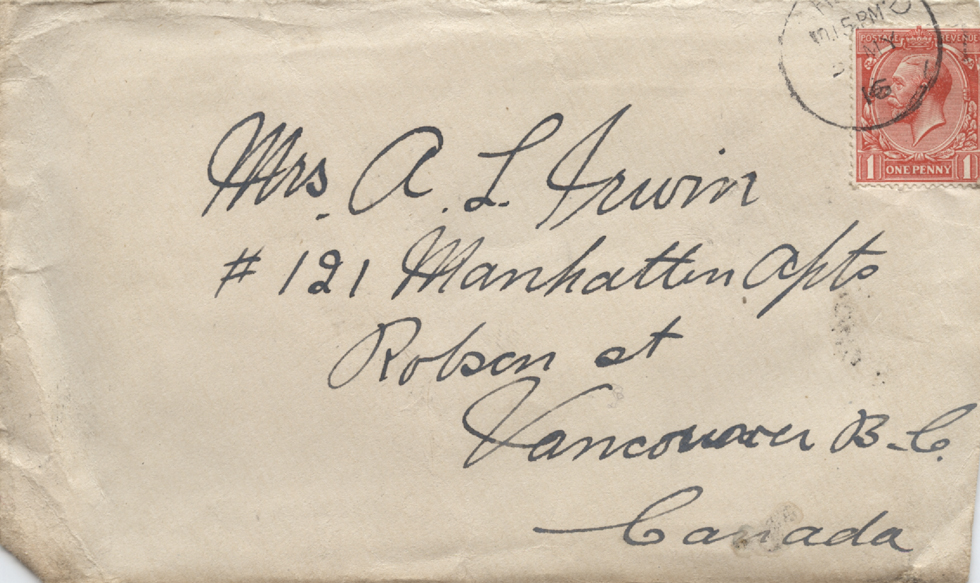 12 15 PM
MY
16
POSTAGE REVENUE
1 ONE PENNY 1
Mrs. A. L. Irwin
# 121 Manhattan Apts
Robson st
Vancouver B.C.
Canada